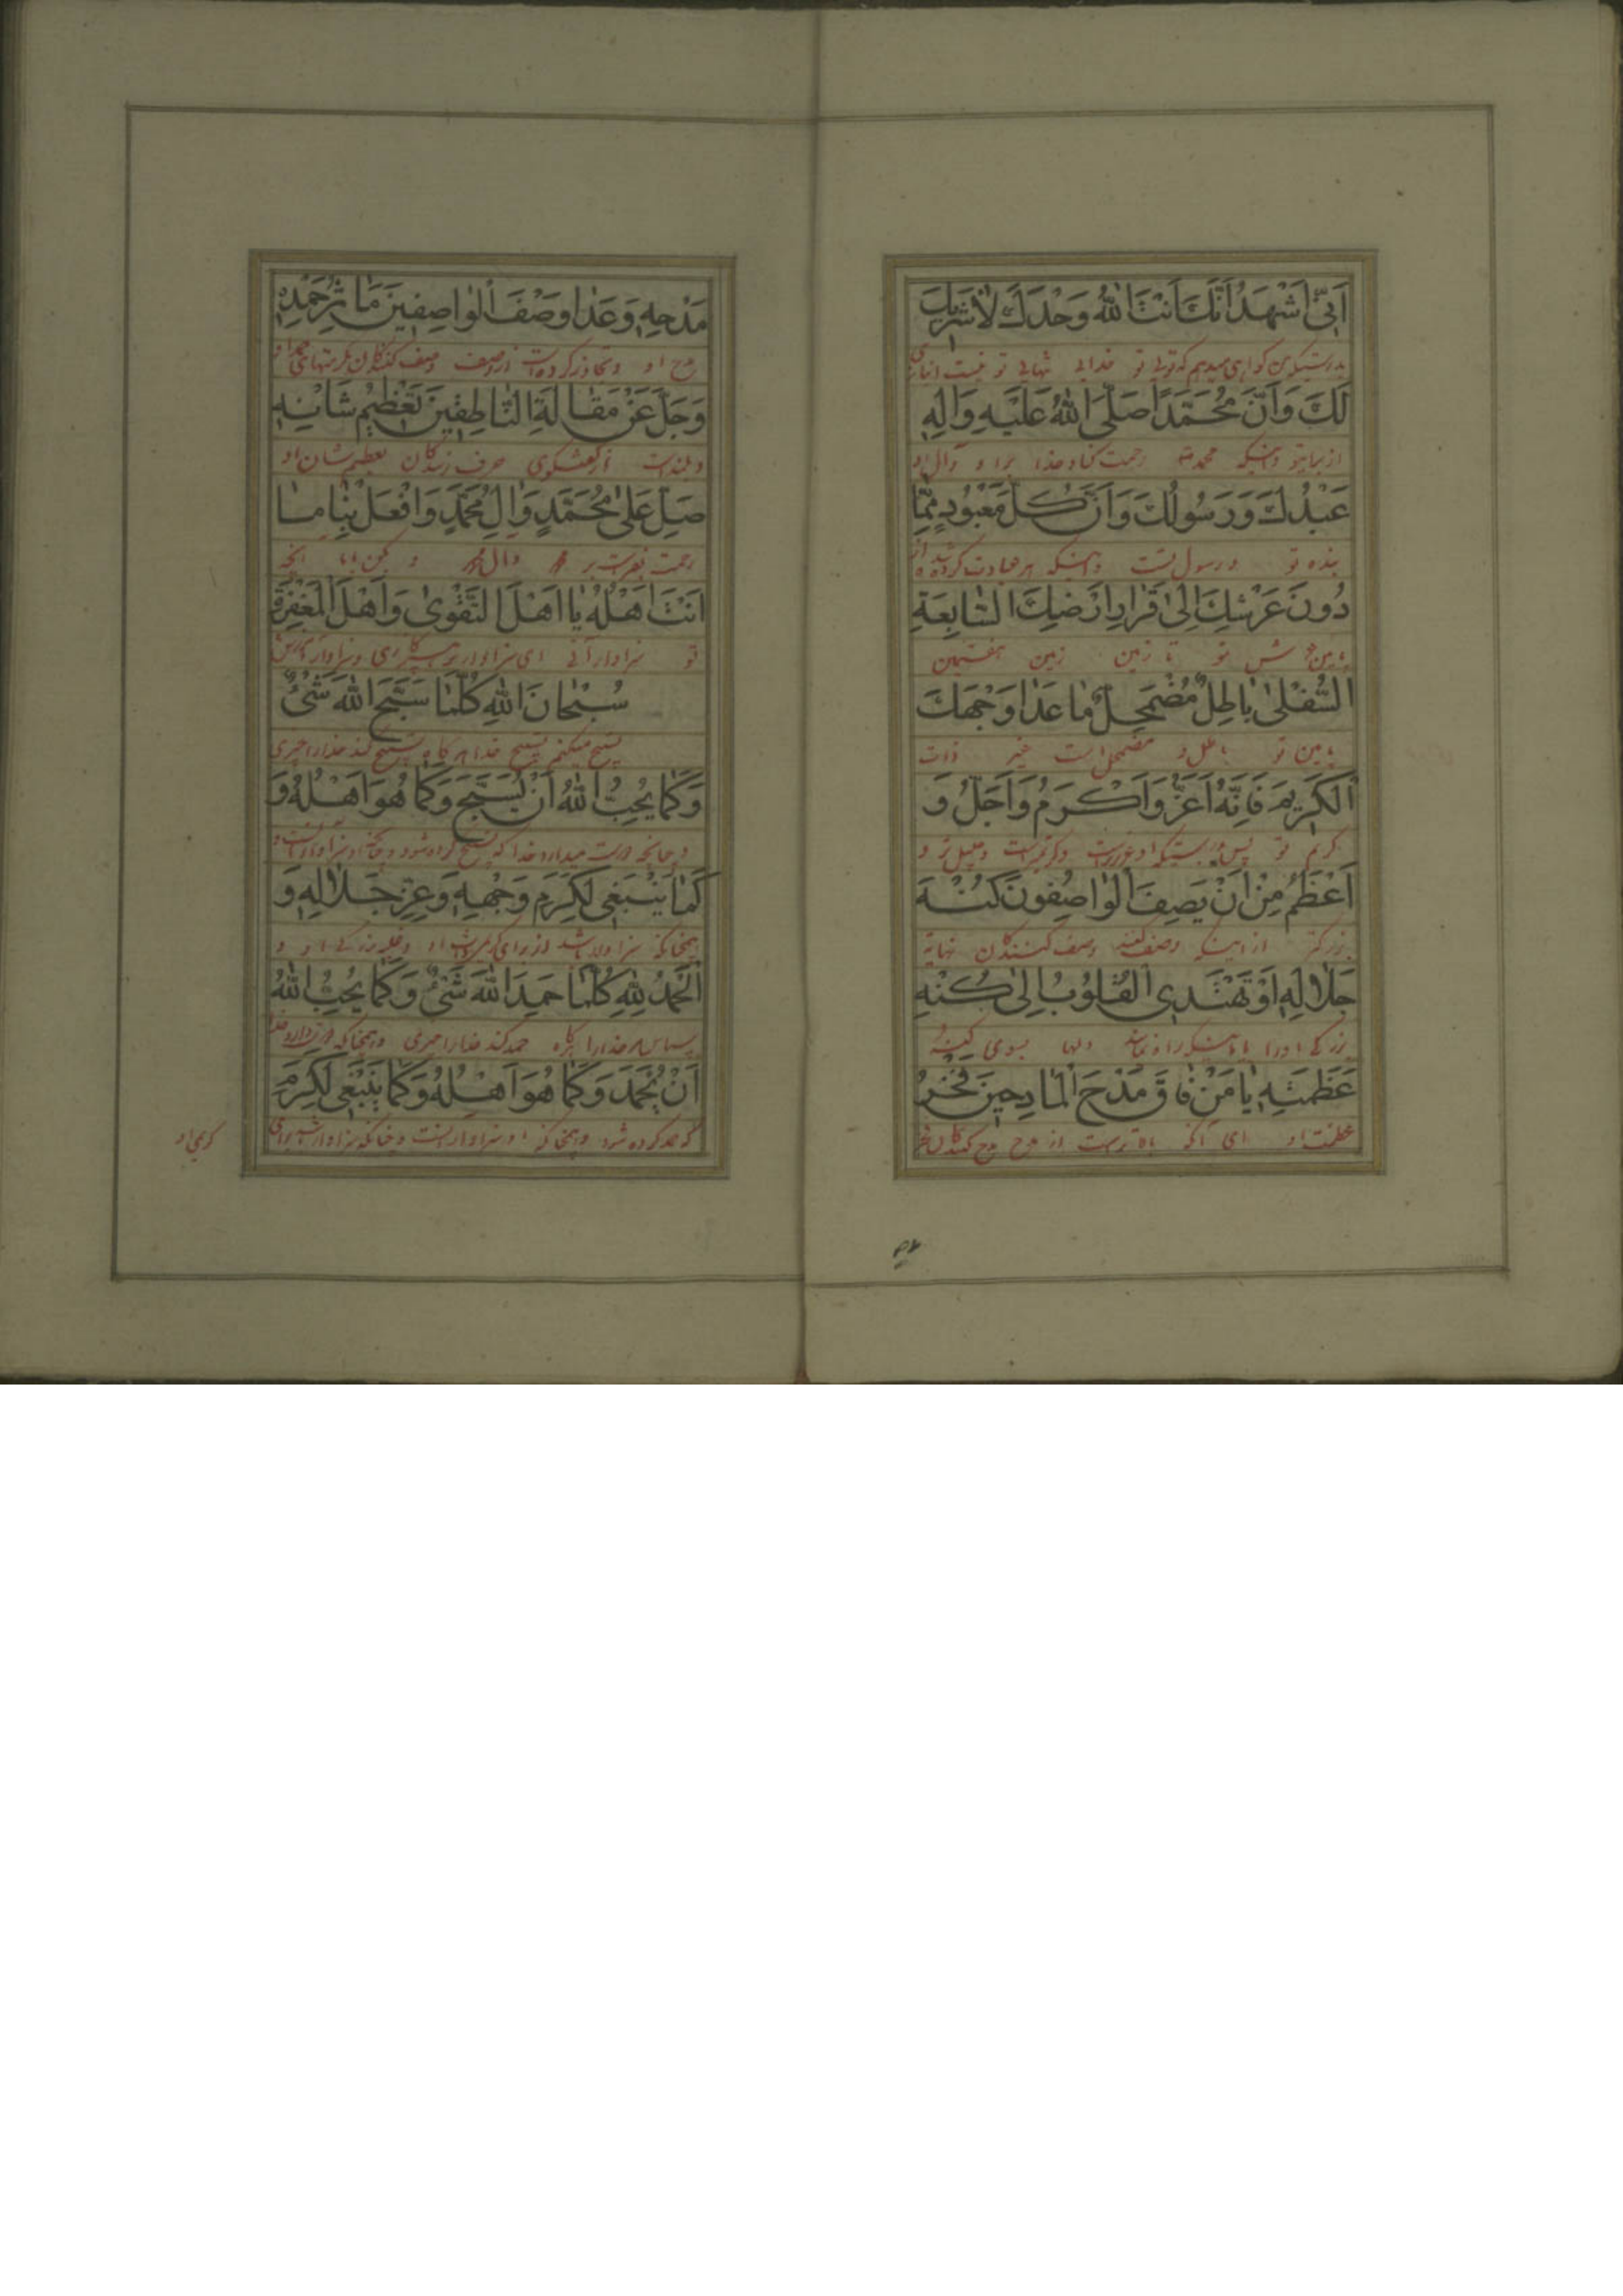 اَنّی اَشْهَدُ اَنَّكَ اَنْتَ اللّٰهُ وَحْدَكَ لٰا شَرِیكَ
بدرستیکه من کواهی میدهم که توئی تو خدائی تنهائی تو نیست
لَكَ وَاَنَّ مُحَمَّدًا صَلَّی اللّٰهُ عَلَیْهِ وَاٰلِهِ
از برایتو و اینکه محمد رحمت کناد خدا براو و آل او
عَبْدُكَ وَرَسُولُكَ وَاَنَّ كُلَّ مَعْبُودٍ مِمّٰا
بنده تو و رسول تست و اینکه هر عبادت کرده شد از
دُونَ عَرْشِكَ اِلیٰ قَرٰارِ اَرْضِكَ السّٰابِعَةِ
تو تا زمین زمین هفتمین
السُّفْلیٰ بٰاطِلٌ مُضْمَحِلٌّ مٰا عَدٰا وَجْهَكَ
پایین تو باطل و مضمحل است غیر ذات
الْكَرِیمَ فَاِنَّهُ اَعَزُّ وَاَكْرَمُ وَاَجَلُّ وَ
کریم تو پس بدرستیکه او و جلیل تر و
اَعْظَمُ مِنْ اَنْ یَصِفَ الْوٰاصِفُونَ كُنْهَ
بزرکتر از اینکه وصف کنند وصف کنندکان نهایة
جَلٰالِهِ اَوْ تَهْتَدِیَ الْقُلُوبُ اِلیٰ كُنْهِ
بزرکی او را یا دلها بسوی کنه
عَظَمَتِهِ یٰا مَنْ فٰاقَ مَدْحَ الْمٰادِحِینَ فَخْرُ
عظمت او ای آنکه بالاتر است از مدح مدح کنندکان فخر
مَدْحِهِ وَعَدٰا وَصْفَ الْوٰاصِفِینَ مَاٰثِرُ حَمْدِهِ
مدح او و تجاوز کرده است از وصف وصف کنندکان حمد او
وَجَلَّ عَنْ مَقٰالَةِ النّٰاطِقِینَ تَعْظِیمُ شَاْنِهِ
و بلند است از کفتکوی حرف زنندکان تعظیم شان او
صَلِّ عَلیٰ مُحَمَّدٍ وَاٰلِ مُحَمَّدٍ وَافْعَلْ بِنٰا مٰا
رحمت بفرست بر محمد و آل محمد و بکن بما آنچه
اَنْتَ اَهْلُهُ یٰا اَهْلَ التَّقْویٰ وَاَهْلَ الْمَغْفِرَةِ
تو سزاوار آنی ای سزاوار پرهیزکاری و سزاوار آمرزش
سُبْحٰانَ اللّٰهِ كُلَّمٰا سَبَّحَ اللّٰهَ شَیْءٌ
تسبیح میکنم تسبیح خدا هر کاه تسبیح کند خدا را چیزی
وَكَمٰا یُحِبُّ اللّٰهُ اَنْ یُسَبَّحَ وَكَمٰا هُوَ اَهْلُهُ وَ
و چنانچه دوست میدارد خدا که تسبیح کرده شود و چنانچه او سزاوار آنست و
كَمٰا یَنْبَغی لِكَرَمِ وَجْهِهِ وَعِزِّ جَلٰالِهِ وَ
همچنانکه سزاوار باشد از برای بزرکی او و
اَلْحَمْدُ لِلّٰهِ كُلَّمٰا حَمِدَ اللّٰهَ شَیْءٌ وَكَمٰا یُحِبُّ اللّٰهُ
سپاس مر خدا را هر کاه حمد کند خدا را چیزی و همچنانکه دوست دارد خدا
اَنْ یُحْمَدَ وَكَمٰا هُوَ اَهْلُهُ وَكَمٰا یَنْبَغی لِكَرَمِ
که حمد کرده شود و همچنانکه او سزاوار آنست و چنانکه سزاوار باشد برای
کریمی او